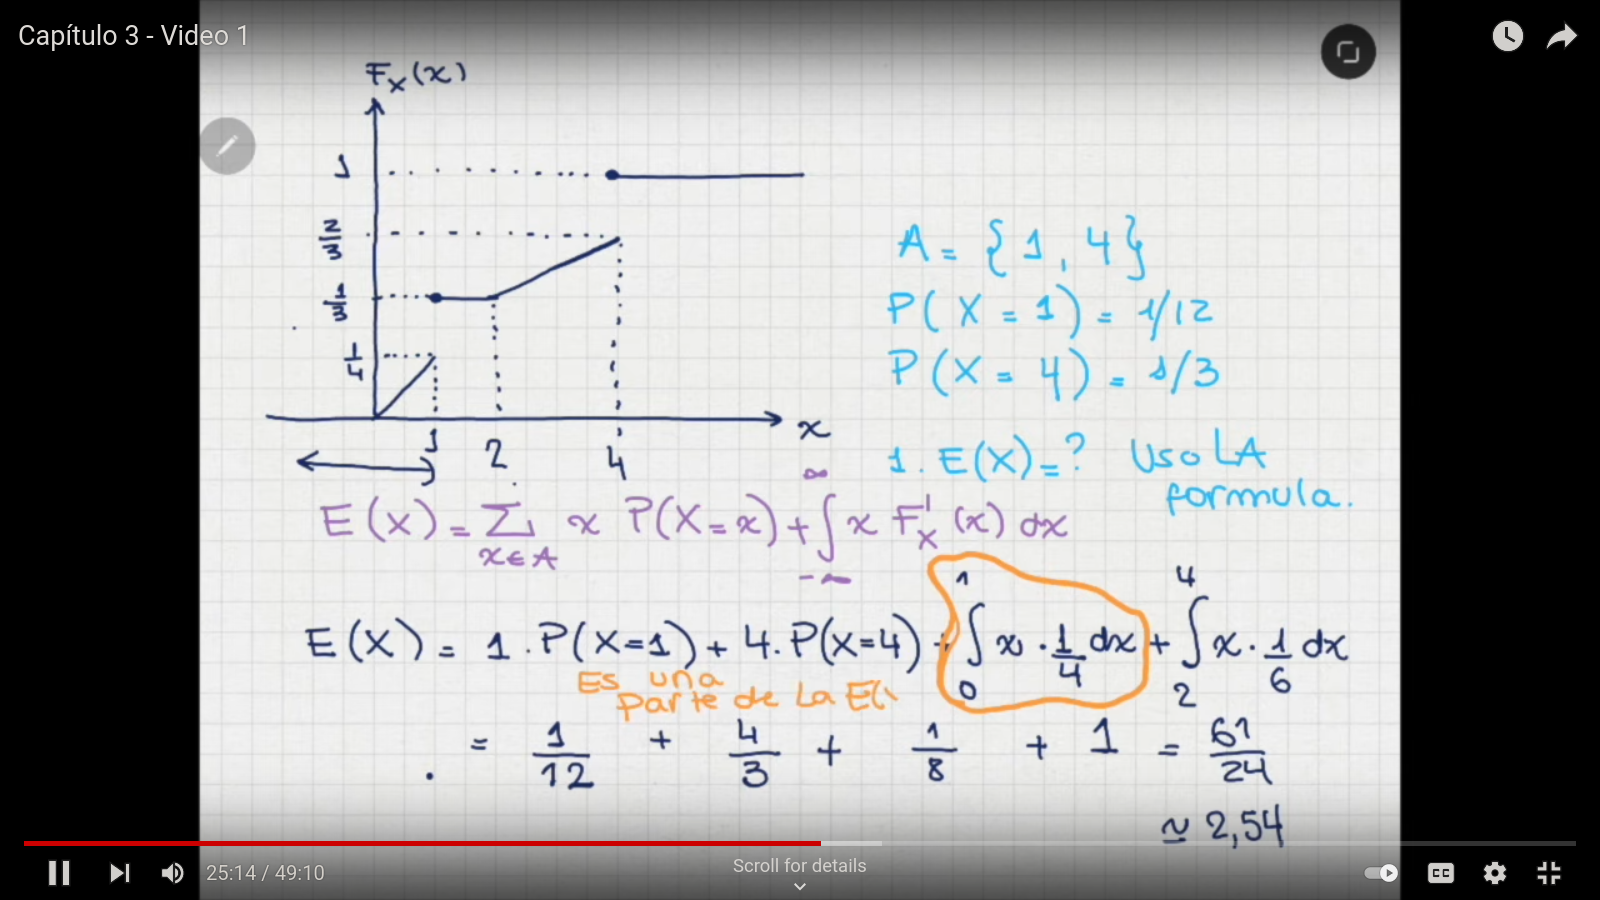 Capítulo 3 - Video 1
Fx(x)
1
2/3
1/3
1/4
1 2 4 x
A = {1, 4}
P(X = 1) = 1/12
P(X = 4) = 1/3
1. E(X) = ? USO LA
formula.
E(X) = ∑ x∈A x P(X=x) + ∫ -∞ ∞ x F'x(x) dx
E(X) = 1 . P(X=1) + 4. P(X=4) + ∫ 0 1 x . 1/4 dx + ∫ 2 4 x . 1/6 dx
Es una
parte de La E(
= 1/12 + 4/3 + 1/8 + 1 = 61/24
≃ 2,54
25:14 / 49:10
Scroll for details
CC